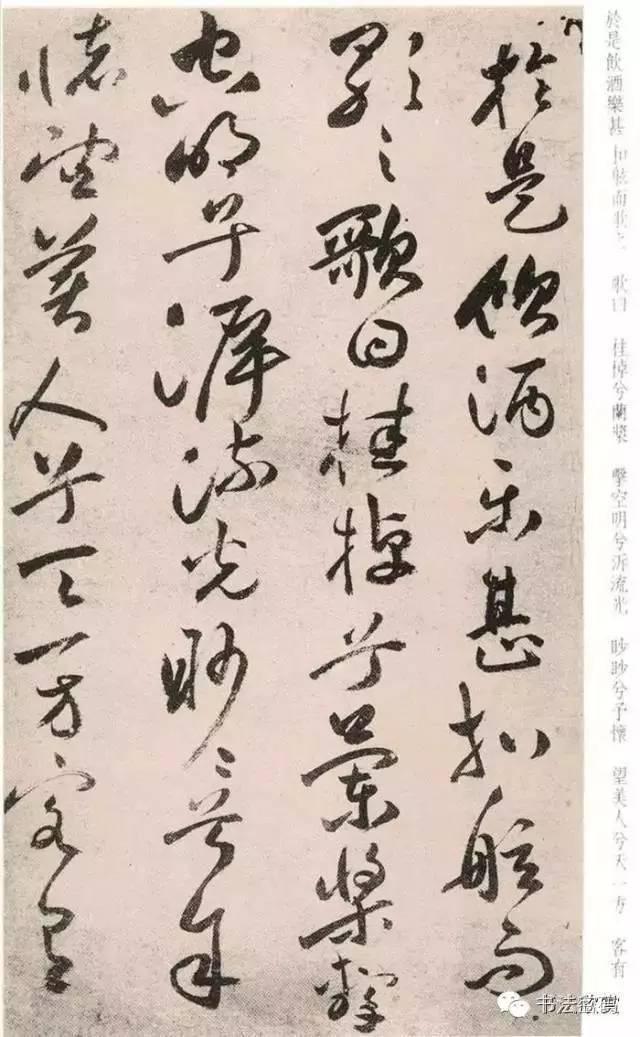 於是飲酒樂甚 扣舷而歌之 歌曰 桂棹兮蘭槳 擊空明兮泝流光 眇眇兮予懷 望美人兮天一方 客有
於是飲酒樂甚扣舷而
歌之歌曰桂棹兮蘭槳擊
空明兮泝流光眇眇兮予
懷望美人兮天一方客有
书法欣赏